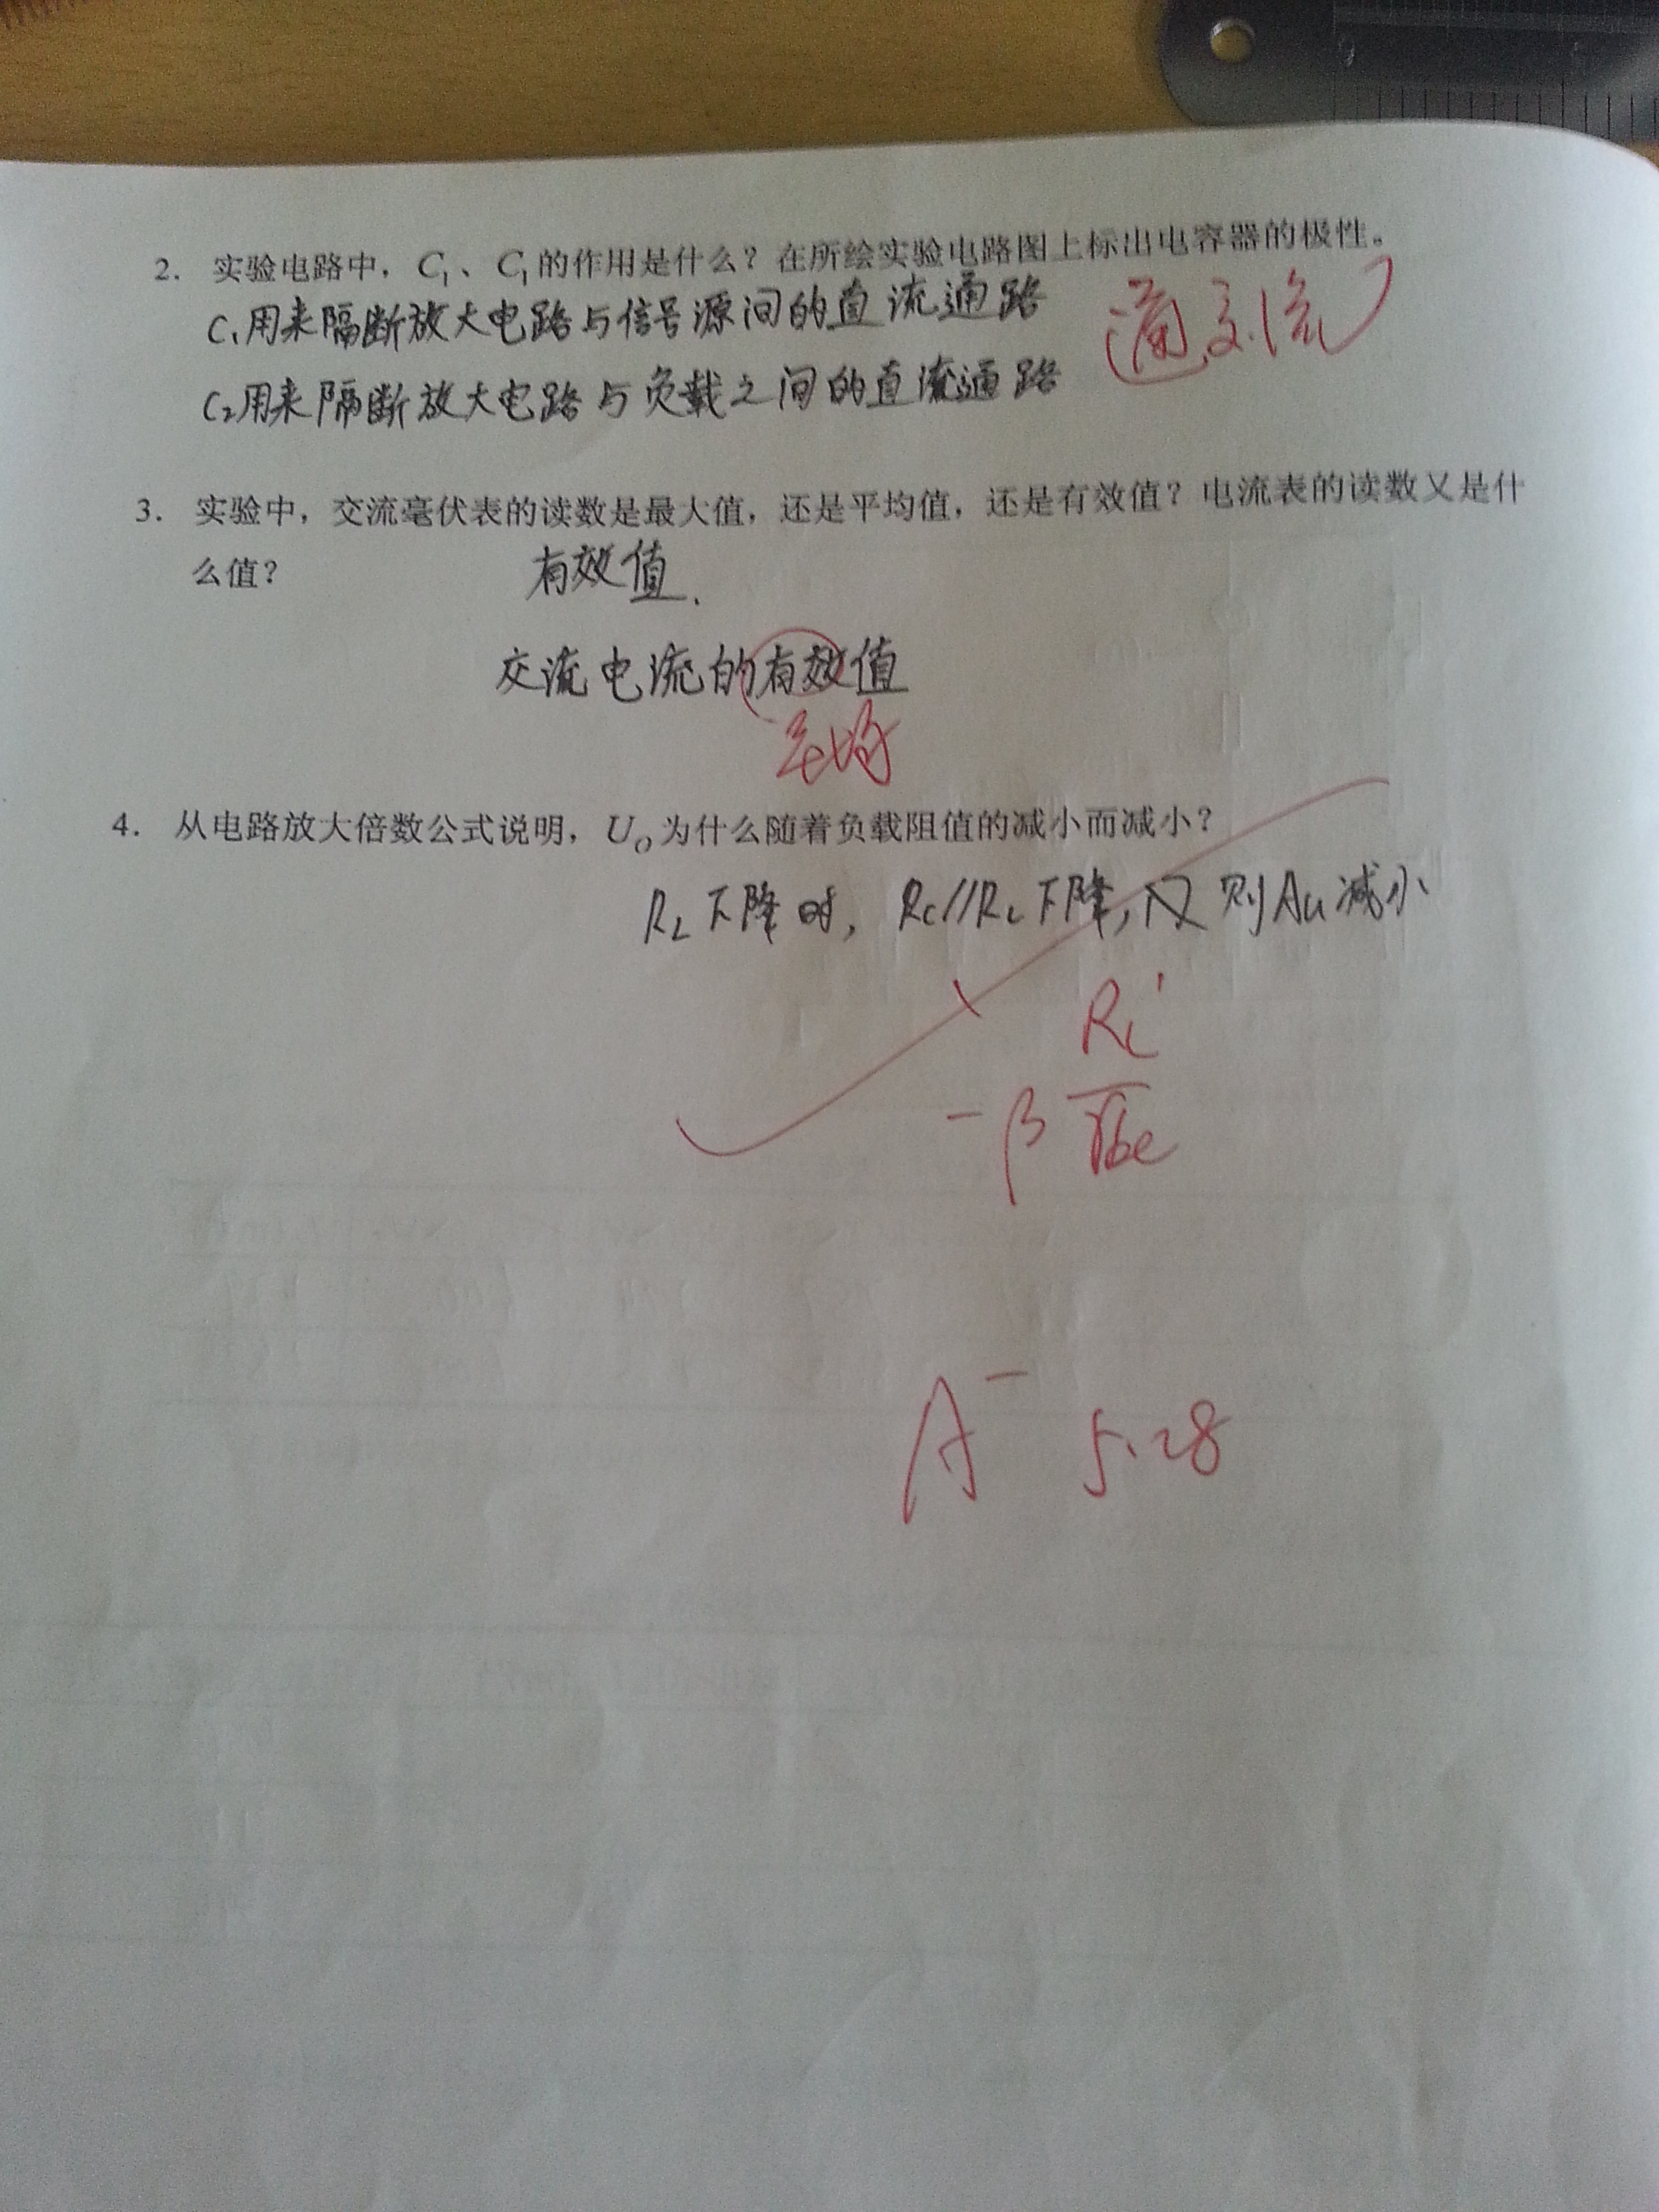 2. 实验电路中，C₁、C₁的作用是什么？在所绘实验电路图上标出电容器的极性。
C₁用来隔断放大电路与信号源间的直流通路
通交流
C₂用来隔断放大电路与负载之间的直流通路
3. 实验中，交流毫伏表的读数是最大值，还是平均值，还是有效值？电流表的读数又是什
么值？
有效值.
交流电流的有效值
平均
4. 从电路放大倍数公式说明，U₀为什么随着负载阻值的减小而减小？
RL下降时，RC//RL下降， 则Au减小
RL'
-β rbe
A⁻ 5.28